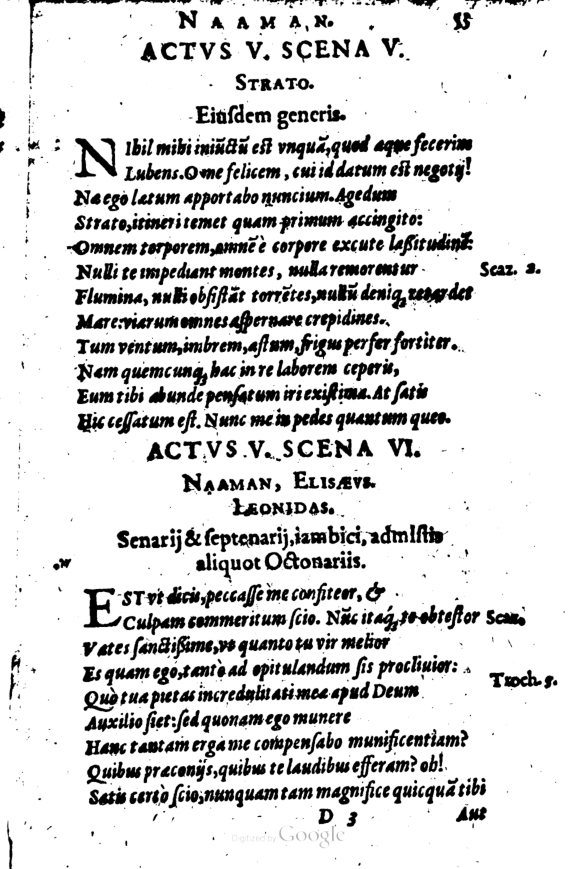 NAAMAN. 55
ACTVS V. SCENA V.
STRATO.
Eiuſdem generis.
NIhil mihi iniũctũ eſt vnquã, quod æque fecerim
Lubens. O me felicem, cui id datum eſt negotij!
Næ ego lætum apportabo nuncium. Agedum
Strato, itineri temet quam primum accingito:
Omnem torporem, omnẽ è corpore excute laßitudinẽ:
Nulli te impediant montes, nulla remorentur Scaz. 2.
Flumina, nulli obſiſtãt torrẽtes, nullũ deniq; retardet
Mare: viarum omnes aſpernare crepidines.
Tum ventum, imbrem, æſtum, frigus perfer fortiter.
Nam quemcunq; hac in re laborem ceperis,
Eum tibi abunde penſatum iri exiſtima. At ſatis
Hic ceſſatum eſt. Nunc me in pedes quantum queo.
ACTVS V. SCENA VI.
NAAMAN, ELISÆVS.
LEONIDAS.
Senarij & ſeptenarij, iambici, admiſtis
aliquot Octonariis.
EST vt dicis, peccaſſe me confiteor, &
Culpam commeritum ſcio. Nũc itaq; te obteſtor Scaz.
Vates ſanctißime, vt quanto tu vir melior
Es quam ego, tantò ad opitulandum ſis procliuior: Troch. 5.
Quò tua pietas incredulitati meæ apud Deum
Auxilio ſiet: ſed quonam ego munere
Hanc tantam erga me compenſabo munificentiam?
Quibus præconijs, quibus te laudibus efferam? oh!
Satis certò ſcio, nunquam tam magnifice quicquã tibi
D 3 Aut
Digitized by Google